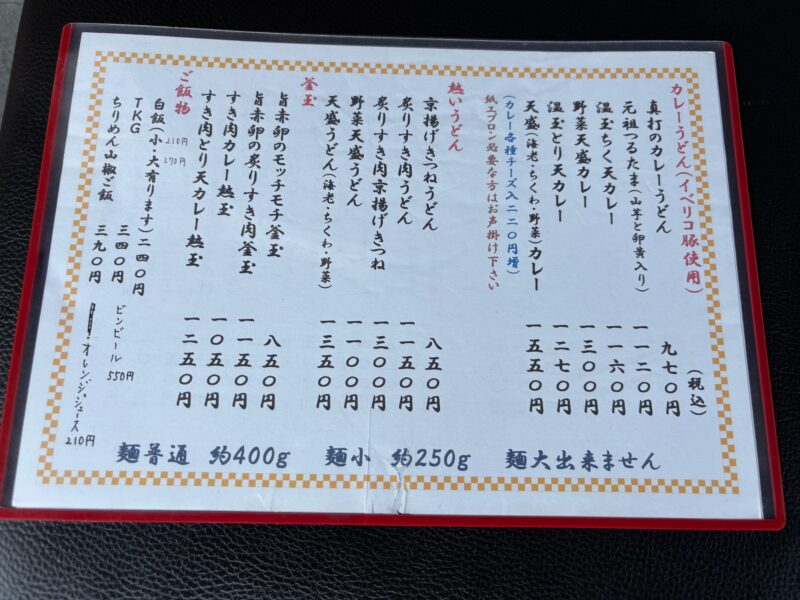 カレーうどん(イベリコ豚使用)
(税込)
真打のカレーうどん 九七〇円
元祖つるたま(山芋と卵黄入り) 一一二〇円
温玉ちく天カレー 一一六〇円
野菜天盛カレー 一三〇〇円
温玉とり天カレー 一二七〇円
天盛(海老・ちくわ・野菜)カレー 一五五〇円
(カレー各種チーズ入二二〇円増)
紙エプロン必要な方はお声掛け下さい
熱いうどん
京揚げきつねうどん 八五〇円
炙りすき肉うどん 一一五〇円
炙りすき肉京揚げきつね 一三〇〇円
野菜天盛うどん 一一〇〇円
天盛うどん(海老・ちくわ・野菜) 一三五〇円
釜玉
旨赤卵のモッチモチ釜玉 八五〇円
旨赤卵の炙りすき肉釜玉 一一五〇円
すき肉カレー熱玉 一〇五〇円
すき肉とり天カレー熱玉 一二五〇円
ご飯物
白飯(小・大有ります)二四〇円
210円
TKG 三四〇円
ちりめん山椒ご飯 三九〇円
ビンビール 550円
オレンジジュース 210円
麺普通 約400g 麺小 約250g 麺大出来ません